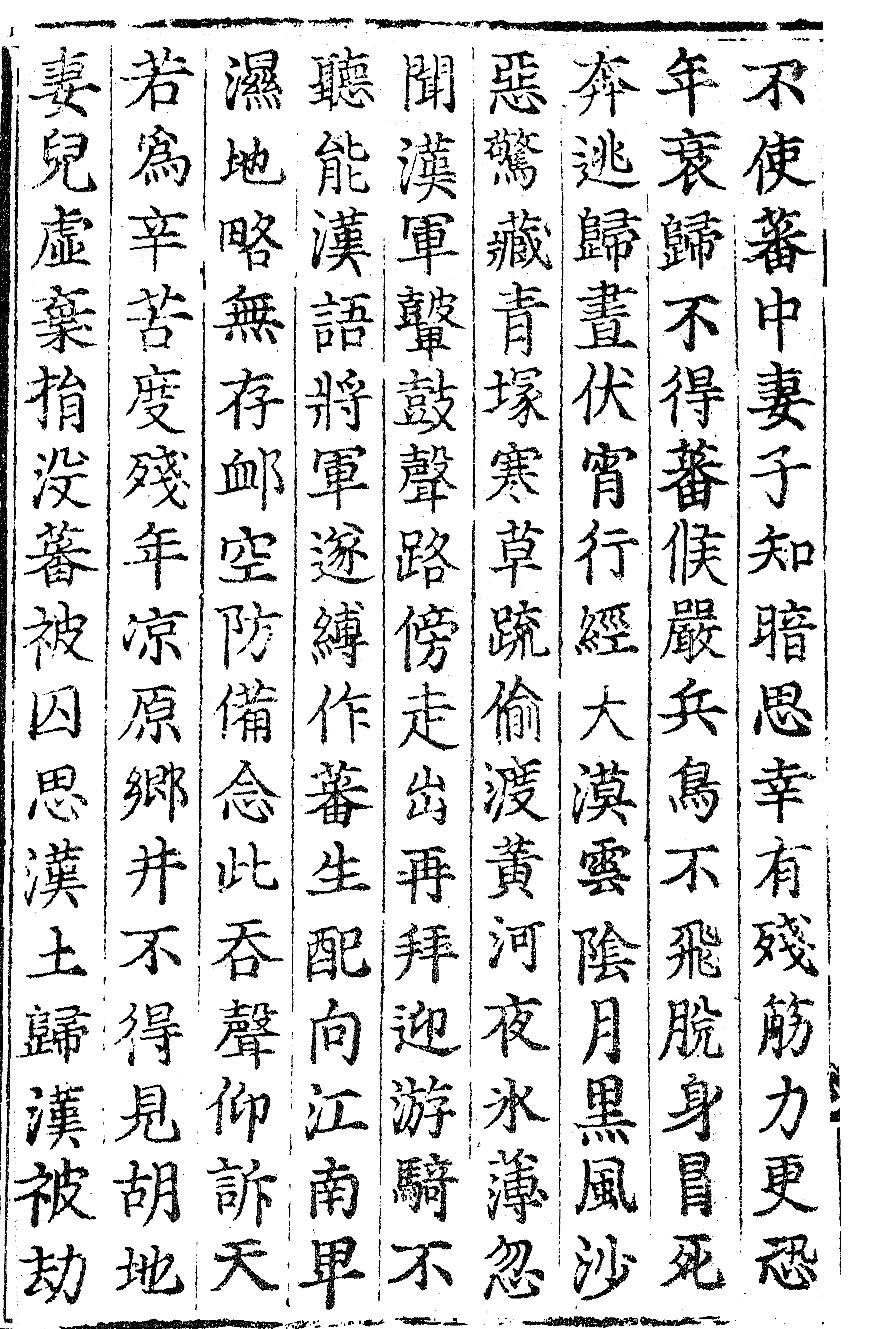 不使蕃中妻子知暗思幸有殘筋力更恐
年衰歸不得蕃候嚴兵鳥不飛脫身冒死
奔逃歸晝伏宵行經大漠雲陰月黑風沙
惡驚藏青塚寒草疏偷渡黃河夜氷薄忽
聞漢軍鼙鼓聲路傍走出再拜迎游騎不
聽能漢語將軍遂縛作蕃生配向江南卑
濕地略無存䘏空防備念此吞聲仰訴天
若爲辛苦度殘年凉原鄉井不得見胡地
妻兒虛棄捐没蕃被囚思漢土歸漢被劫